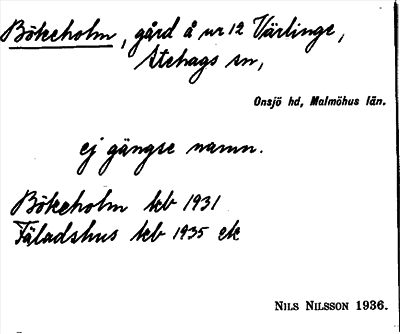 Bökeholm, gård å nr 12 Värlinge,
Stehags sn,
Onsjö hd, Malmöhus län.
ej gängse namn.
Bökeholm kb 1931
Fäladshus kb 1935 etc
NILS NILSSON 1936.